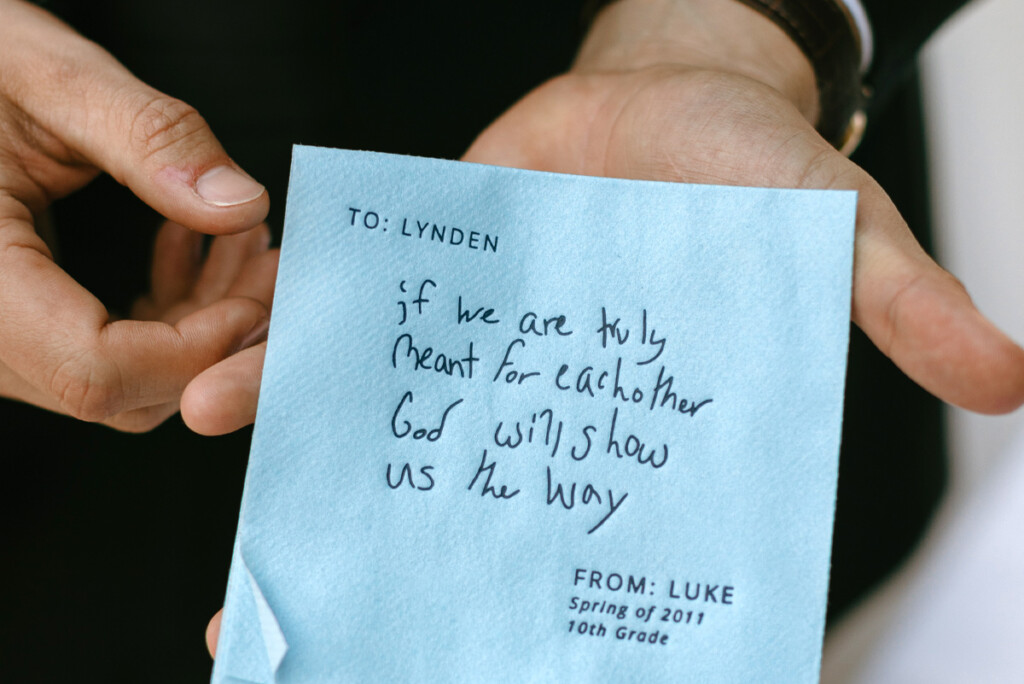 TO: LYNDEN
if we are truly
meant for eachother
God will show
us the way
FROM: LUKE
Spring of 2011
10th Grade